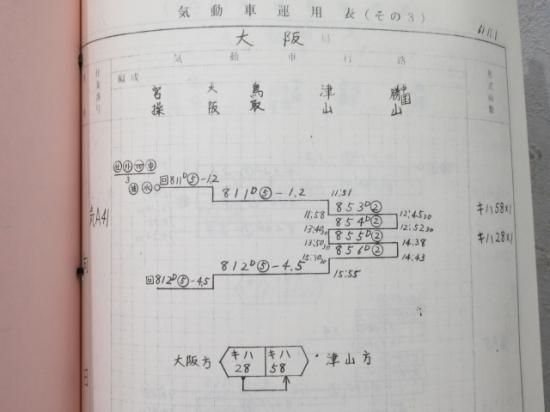 気動車運用表(その3)
61.11.1
大阪
気動車行路
編成
宮操
大阪
鳥取
津山
中国勝山
形式両数
3
回811D⑤-1.2
811D⑤-1.2
11:51
853D②
11:58
12:45 30
854D②
13:49
12:52 30
855D②
13:50
14.38
856D②
15:30
14.43
気A41
キハ58×1
キハ28×1
回812D⑤-4.5
812D⑤-4.5
15:55
大阪方
キハ28
キハ58
津山方